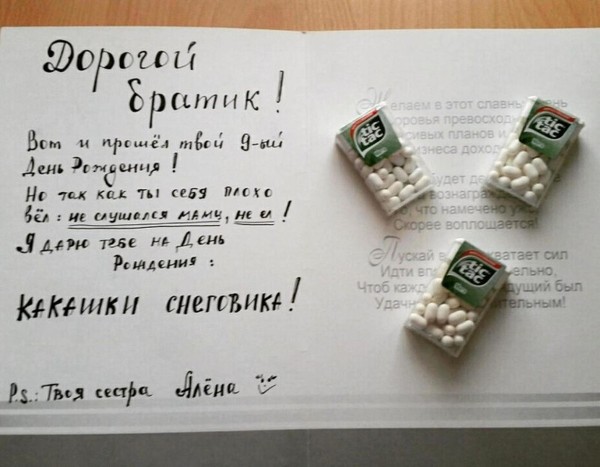 Дорогой
братик!
Вот и прошёл твой 9-ый
День Рождения!
Но так как ты себя плохо
вёл: не слушался маму, не ел!
Я дарю тебе на День
Рождения:
КАКАШКИ СНЕГОВИКА!
P.S.: Твоя сестра Алёна
Желаем в этот славный день
доровья превосход
сивых планов и
изнеса доход
tic tac
tic tac
будет де
вознаграж
то, что намечено у
Скорее воплощается!
Пускай хватает сил
Идти вп тельно,
Чтоб кажд дущий был
Удач тельным!
tic tac